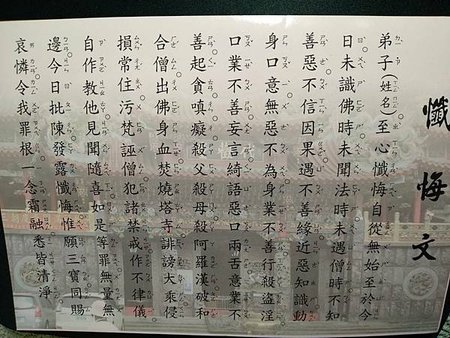 懺悔文
弟子(姓名)至心懺悔自從無始至於今
日未識佛時未聞法時未遇僧時不知
善惡不信因果遇不善緣近惡知識動
身口意無惡不為身業不善行殺盜淫
口業不善妄言綺語惡口兩舌意業不
善起貪嗔癡殺父殺母殺阿羅漢破和
合僧出佛身血焚燒塔寺誹謗大乘侵
損常住污梵誣僧犯諸禁戒作不律儀
自作教他見聞隨喜如是等罪無量無
邊今日批陳發露懺悔惟願三寶同賜
哀憐令我罪根一念霜融悉皆清淨